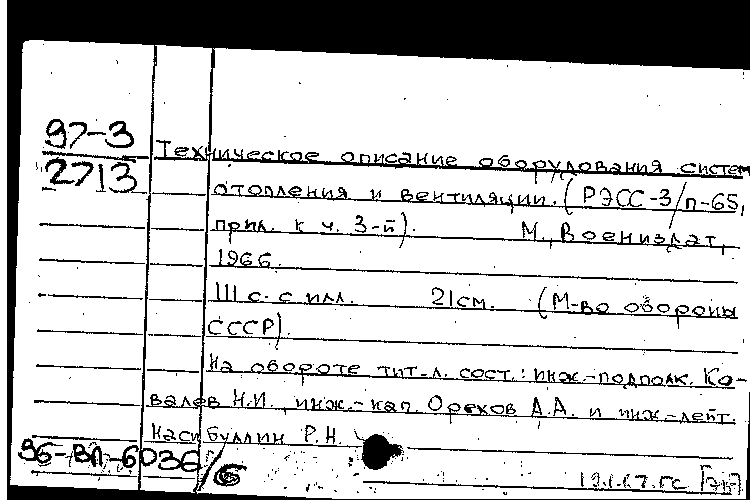 97-3
2713
Техническое описание оборудования систем
отопления и вентиляции. (РЭСС-3/п-65,
прил. к ч. 3-й). М., Воениздат,
1966.
111 с. с илл. 21 см. (М-во обороны
СССР).
На обороте тит. л. сост.: инж.-подполк. Ко-
валев Н.И., инж.-кап. Орехов А.А. и инж.-лейт.
Насибуллин Р.Н.
96-ВП-6036/6